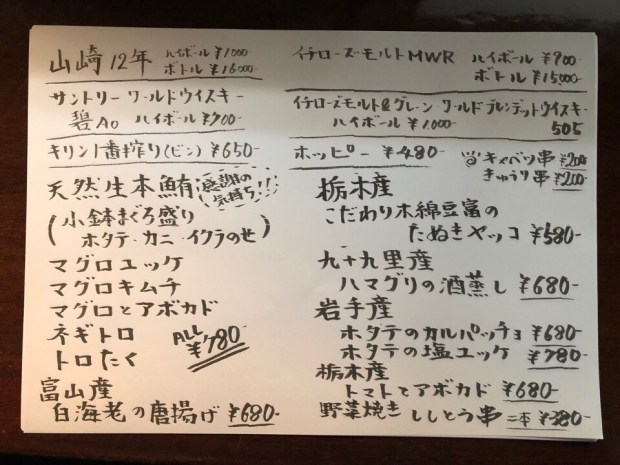 山崎12年 ハイボール ¥1000
ボトル ¥16000
サントリー ワールドウイスキー
碧Ao ハイボール ¥900
キリン一番搾り(ビン) ¥650-
天然生本鮪 感謝の気持ち!!
(小鉢まぐろ盛り
ホタテ・カニ・イクラのせ)
マグロユッケ
マグロキムチ
マグロとアボカド
ネギトロ ALL
トロたく ¥780-
富山産
白海老の唐揚げ ¥680-
イチローズモルトMWR ハイボール ¥900
ボトル ¥15,000
イチローズモルト&グレーン ワールドブレンデットウイスキー
ハイボール ¥1.000 505
ホッピー ¥480
キャベツ串 ¥200
きゅうり串 ¥200
栃木産
こだわり木綿豆富の
たぬきヤッコ ¥580-
九十九里産
ハマグリの酒蒸し ¥680-
岩手産
ホタテのカルパッチョ ¥680-
ホタテの塩ユッケ ¥780-
栃木産
トマトとアボカド ¥680-
野菜焼き ししとう串 二本 ¥380-